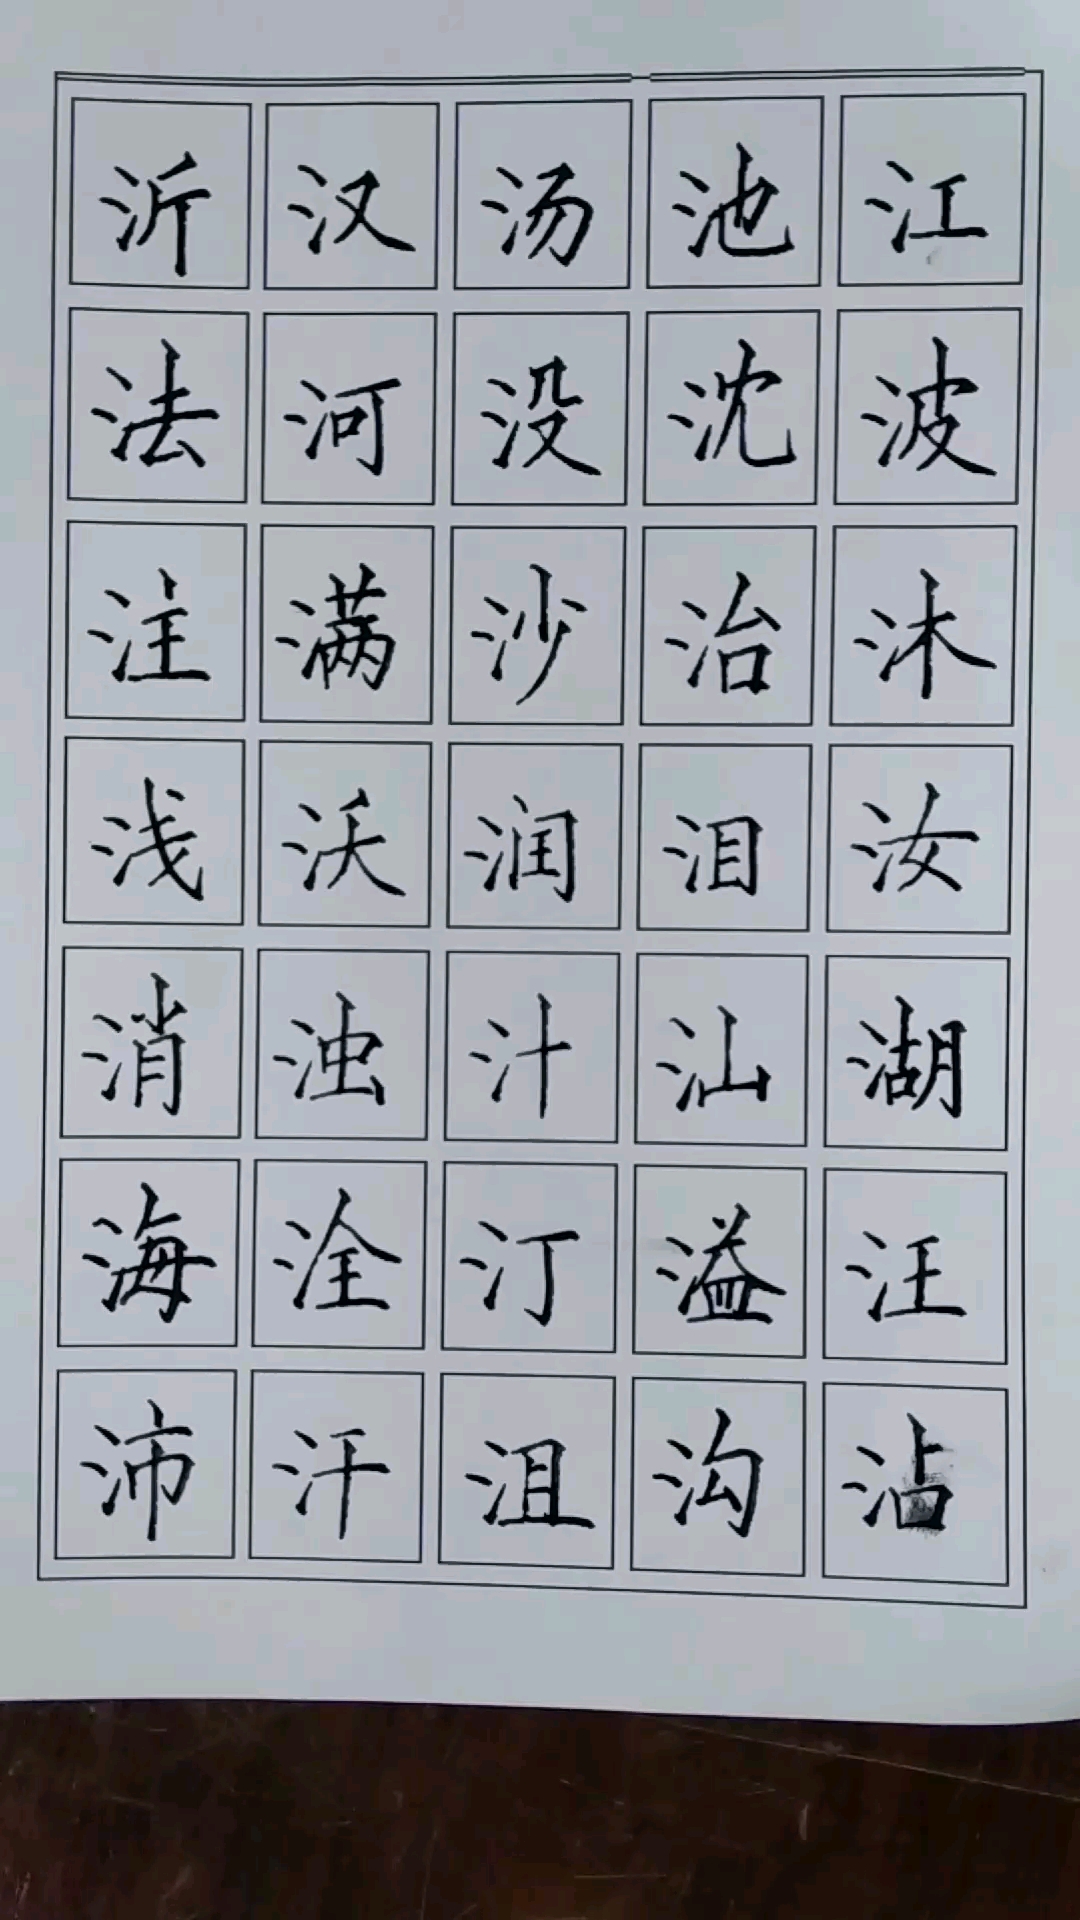 沂汉汤池江
法河没沈波
注满沙治沐
浅沃润泪汝
消浊汁汕湖
海洤汀溢汪
沛汗沮沟沾